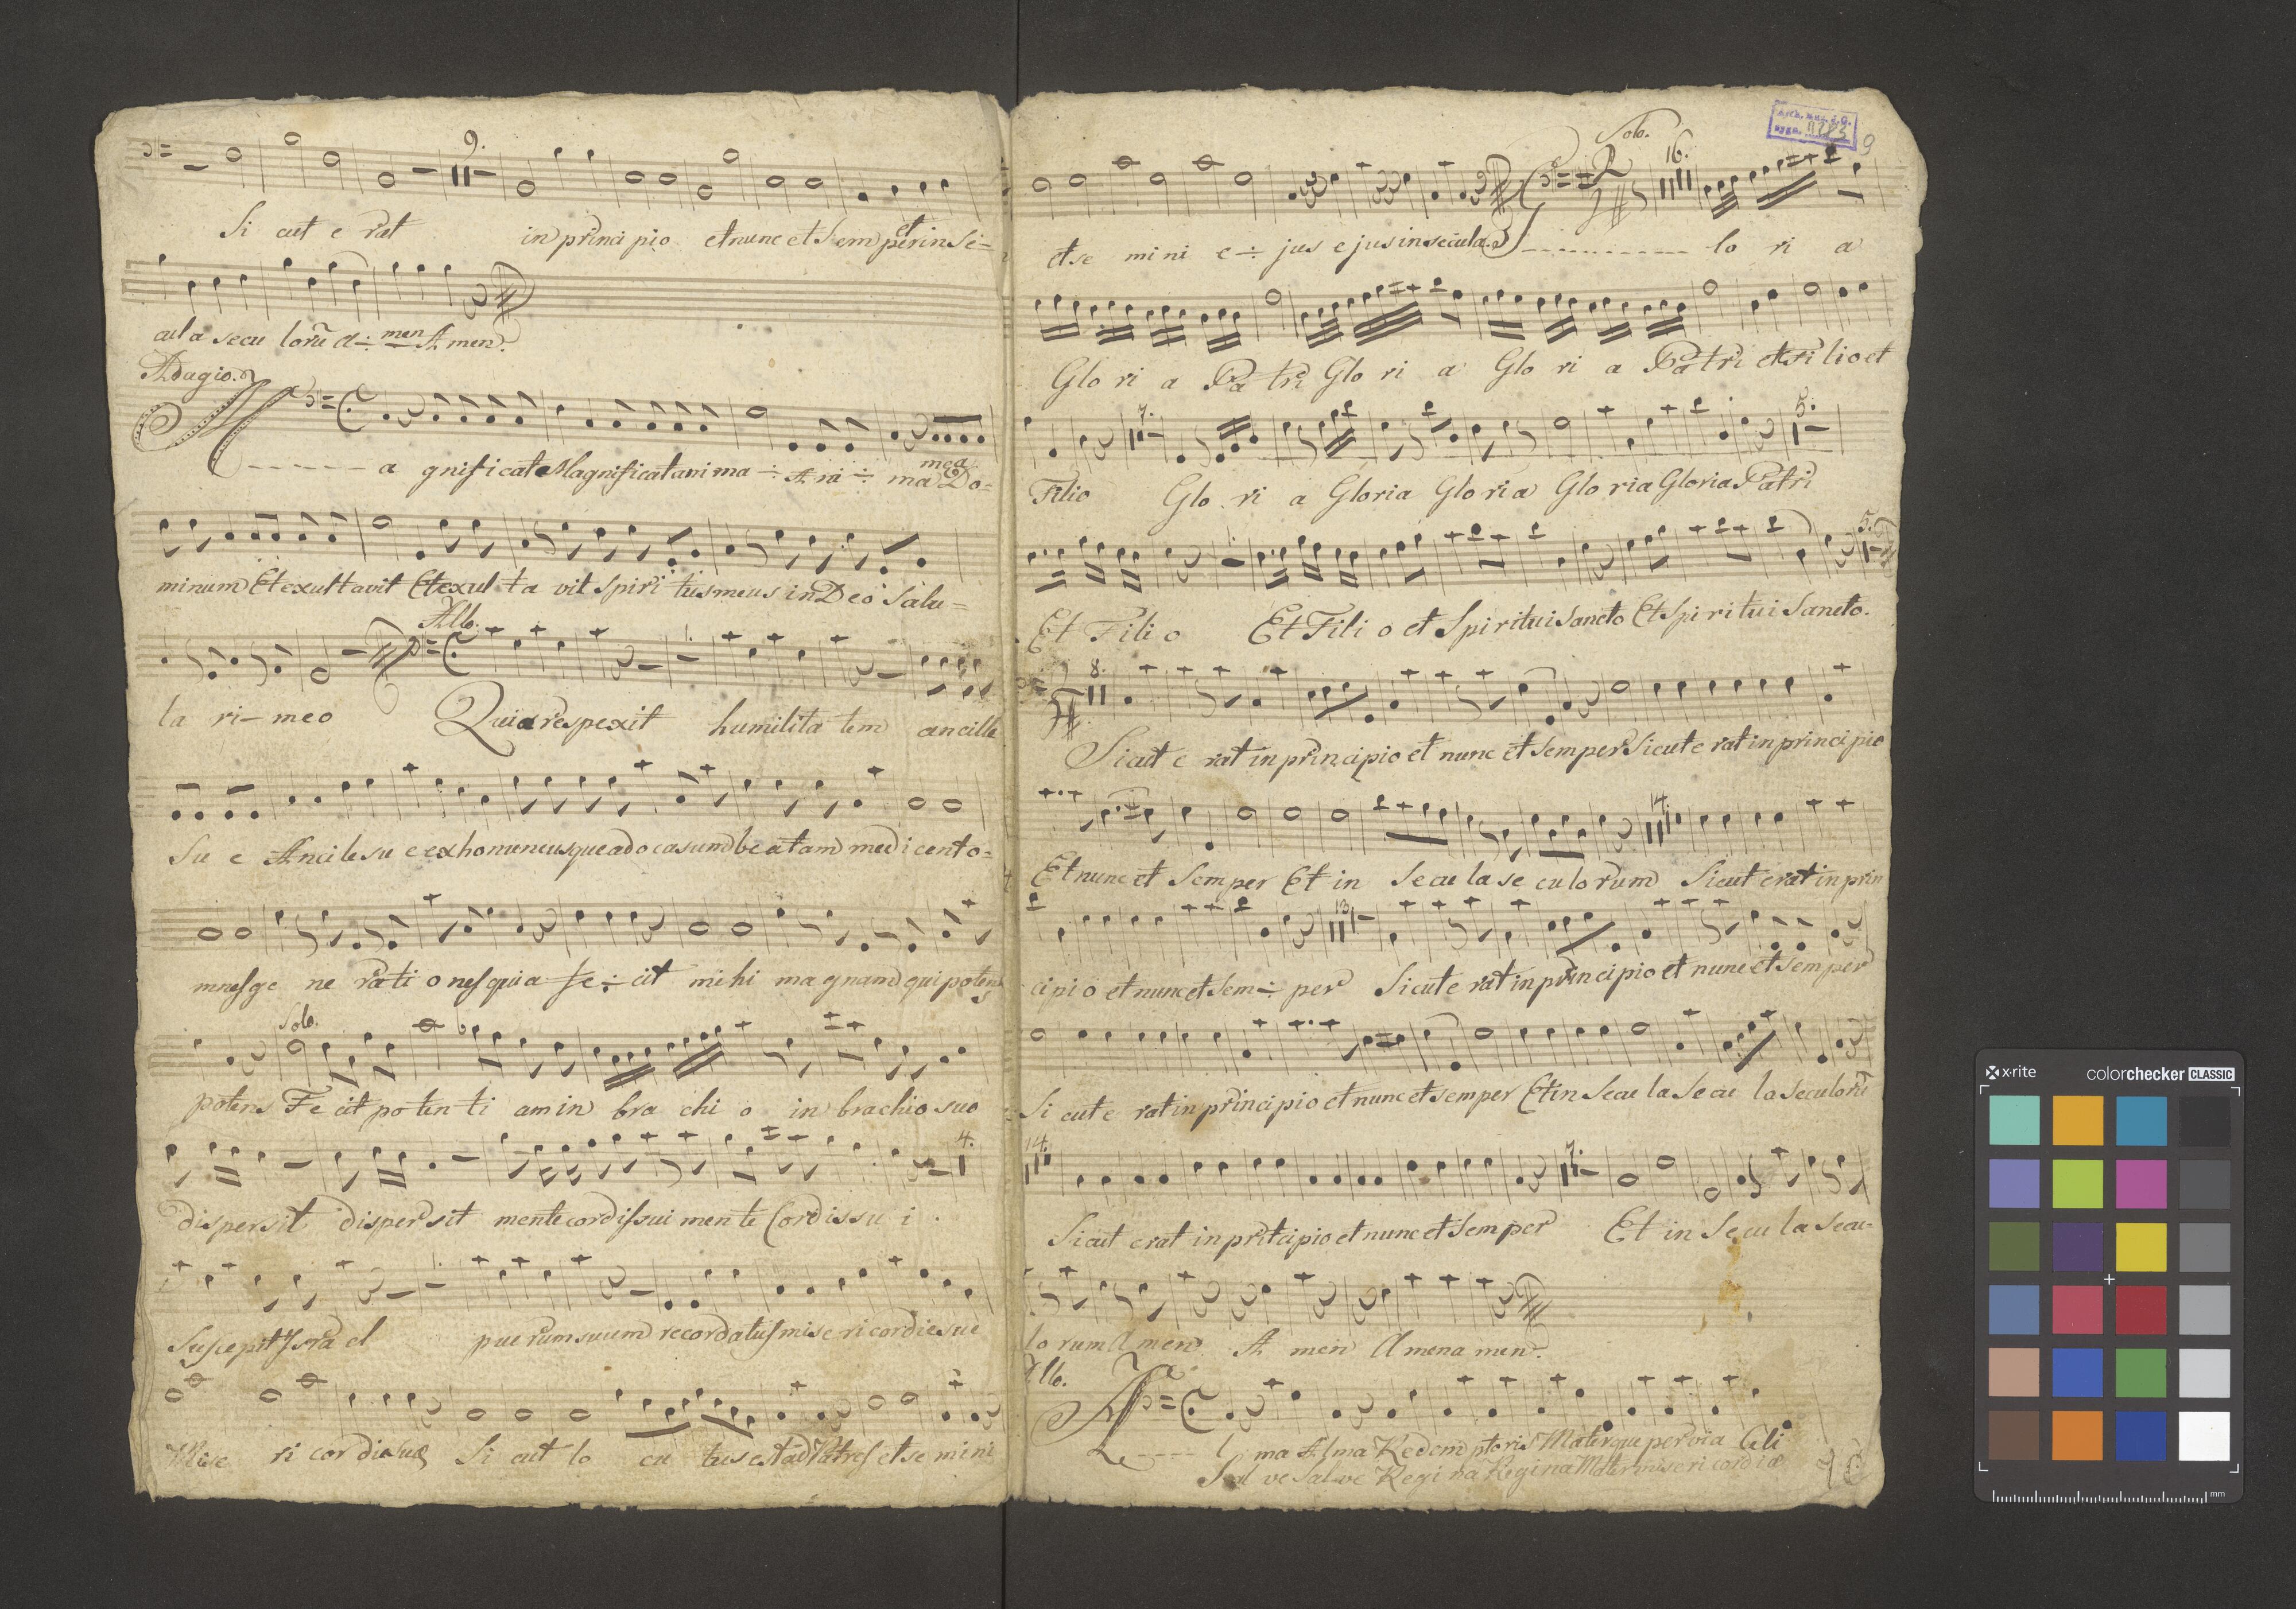 9.
Si cut e rat in princi pio et nunc et Sem per in Se=
et
cula secu lorũ a÷ men Amen.
Adagio.
M - - - - - a gnificat Magnificat anima ÷ Ani ÷ ma Do=
mea
minum Et exultavit Et exul ta vit spiri tus meus in Deo Salu=
Allo.
la ri- meo Quia respexit humilita tem ancille
Su e Ancile su e ex ho nunc usque ad o casum beatam me dicent o=
mnes ge ne rati o nes quia fe÷ cit mihi ma gnam qui potens
Solo.
potens Fe cit po ten ti am in bra chi o in brachio suo
4.
dispersit dispersit mente cordis sui mente Cordis su i.
Suscepit Isra el puerum suum recordatus mise ri cordie sue
Mise ri cordie sue Si cut lo cu tus est ad Patres et se mini
Arch. mus. i. G.
sygn.
9
Solo.
16.
et se mi ni e÷ jus ejus in secula. G - - - - - lo ri a
Glo ri a Pa tri Glo ri a Glo ri a Pa tri et Fi lio et
7. 5.
Filio Glo ri a Gloria Glo ria Glo ria Gloria Patri
5.
Et Fili o Et Fili o et Spiritui Sancto Et Spi ri tui Sancto.
8.
Sicut e rat in principio et nunc et Semper Sicut e rat in principio
14.
Et nunc et Semper Et in Se cu la se cu lo rum Sicut erat in prin
13.
cipi o et nunc et Sem÷ per Sicut e rat in principio et nunc et Semper
Si cut e rat in principio et nunc et semper Et in Secu la Se cu la seculorũ
14. 7.
Sicut erat in pricipio et nunc et Semper Et in Se cu la Secu-
lo rum A men A men A men a men.
Allo.
A - - - - l ma Alma Redemptoris Mater que per via Celi
Sal ve Salve Regi na Regina Mater mise ri cordiæ